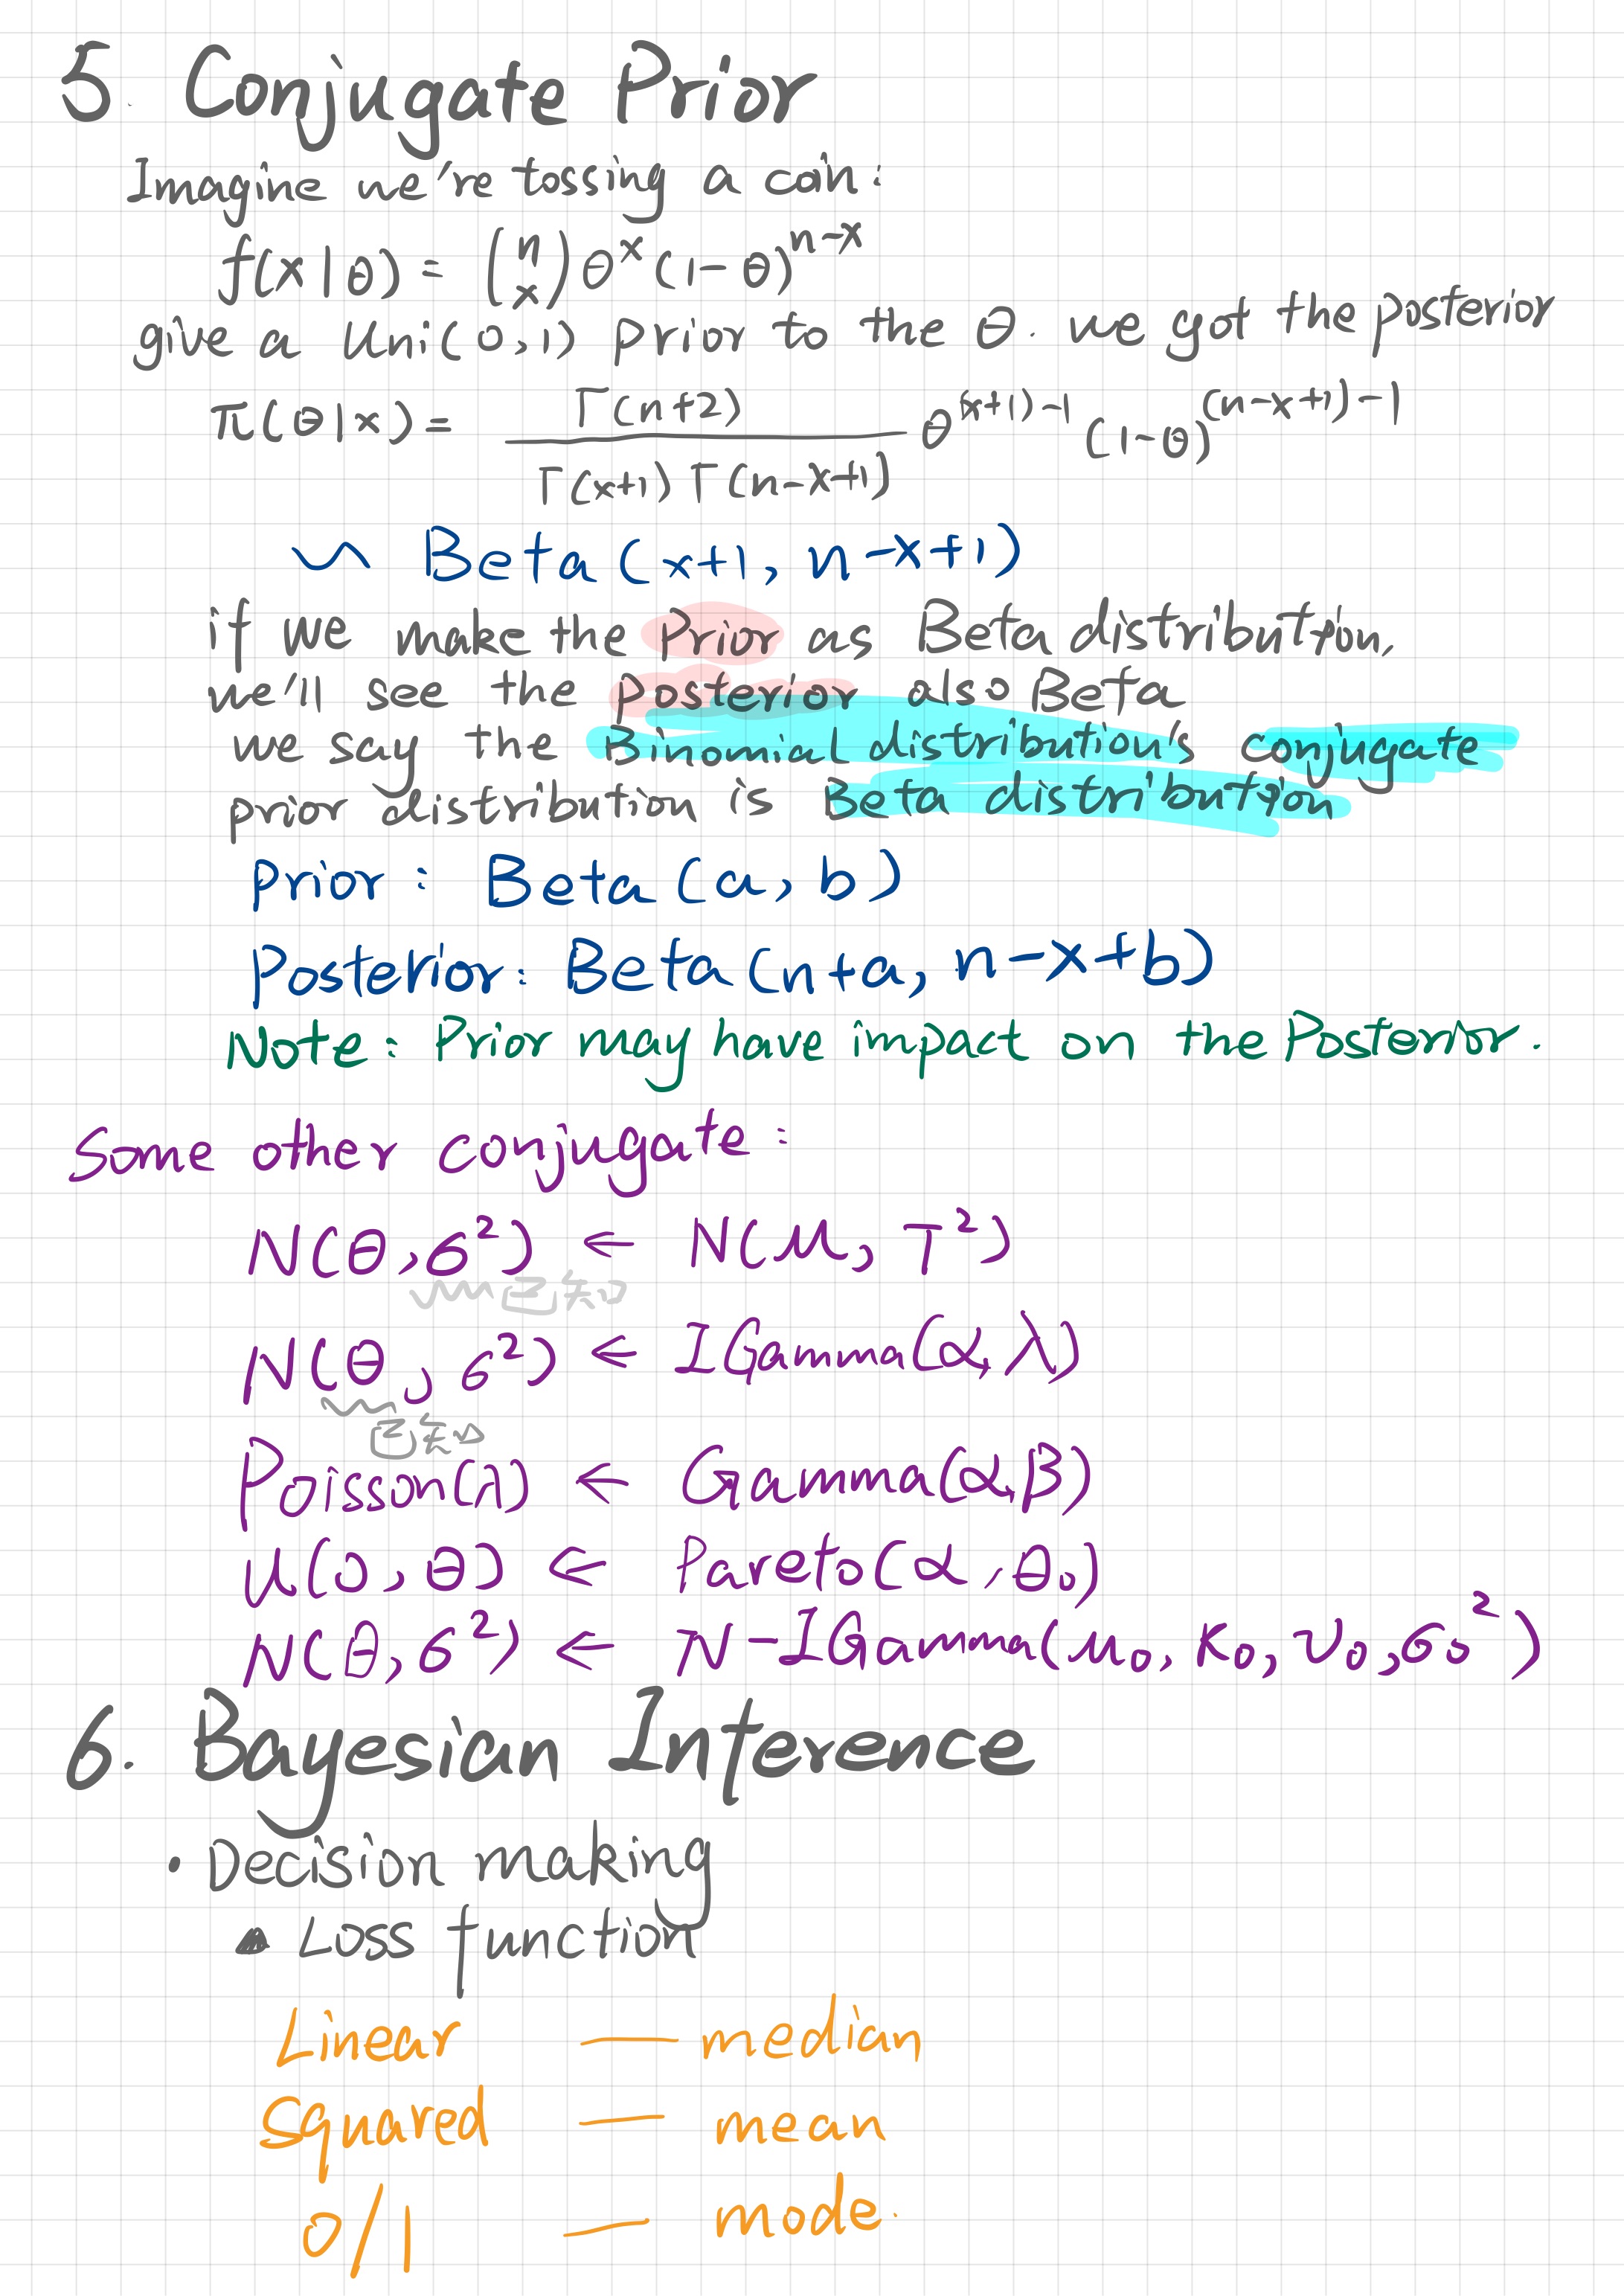 5. Conjugate Prior
Imagine we're tossing a coin:
f(x|θ) = (n x) θ^x (1-θ)^{n-x}
give a Uni(0,1) prior to the θ. we got the posterior
π(θ|x) = Γ(n+2) / Γ(x+1)Γ(n-x+1) θ^{(x+1)-1} (1-θ)^{(n-x+1)-1}
~ Beta(x+1, n-x+1)
if we make the Prior as Beta distribution,
we'll see the posterior also Beta
we say the Binomial distribution's conjugate
prior distribution is Beta distribution
Prior: Beta(a, b)
Posterior: Beta(n+a, n-x+b)
Note: Prior may have impact on the Posterior.
Some other conjugate:
N(θ, σ²) ← N(μ, τ²)
已知
N(θ, σ²) ← IGamma(α, λ)
已知
Poisson(λ) ← Gamma(α, β)
U(0, θ) ← Pareto(α, θ₀)
N(θ, σ²) ← N-IGamma(μ₀, κ₀, ν₀, σ₀²)
6. Bayesian Inference
· Decision making
▲ Loss function
Linear — median
Squared — mean
0/1 — mode.